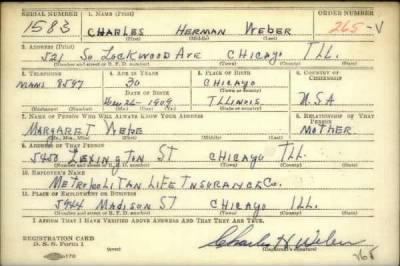 SERIAL NUMBER 1. NAME (Print) ORDER NUMBER
1583 CHARLES HERMAN WEBER 265-V
(First) (Middle) (Last)
2. ADDRESS (Print)
521 So LOCKWOOD AVE CHICAGO ILL.
(Number and street or R. F. D. number) (Town) (County) (State)
3. TELEPHONE 4. AGE IN YEARS 5. PLACE OF BIRTH 6. COUNTRY OF CITIZENSHIP
MANS 8597 30 CHICAGO
DATE OF BIRTH (Town or county)
26-1909 ILLINOIS U.S.A
(Exchange) (Number) (Mo.) (Day) (Yr.) (State or country)
7. NAME OF PERSON WHO WILL ALWAYS KNOW YOUR ADDRESS 8. RELATIONSHIP OF THAT PERSON
MARGARET MOTHER
(Mr., Mrs., Miss) (First) (Middle) (Last)
9. ADDRESS OF THAT PERSON
5450 LEXINGTON ST CHICAGO ILL.
(Number and street or R. F. D. number) (Town) (County) (State)
10. EMPLOYER'S NAME
METROPOLITAN LIFE INSURANCE Co.
11. PLACE OF EMPLOYMENT OR BUSINESS
5944 MADISON ST CHICAGO ILL.
(Number and street or R. F. D. number) (Town) (County) (State)
I AFFIRM THAT I HAVE VERIFIED ABOVE ANSWERS AND THAT THEY ARE TRUE.
REGISTRATION CARD
D. S. S. Form 1 Charles H Weber
(Registrant's signature)